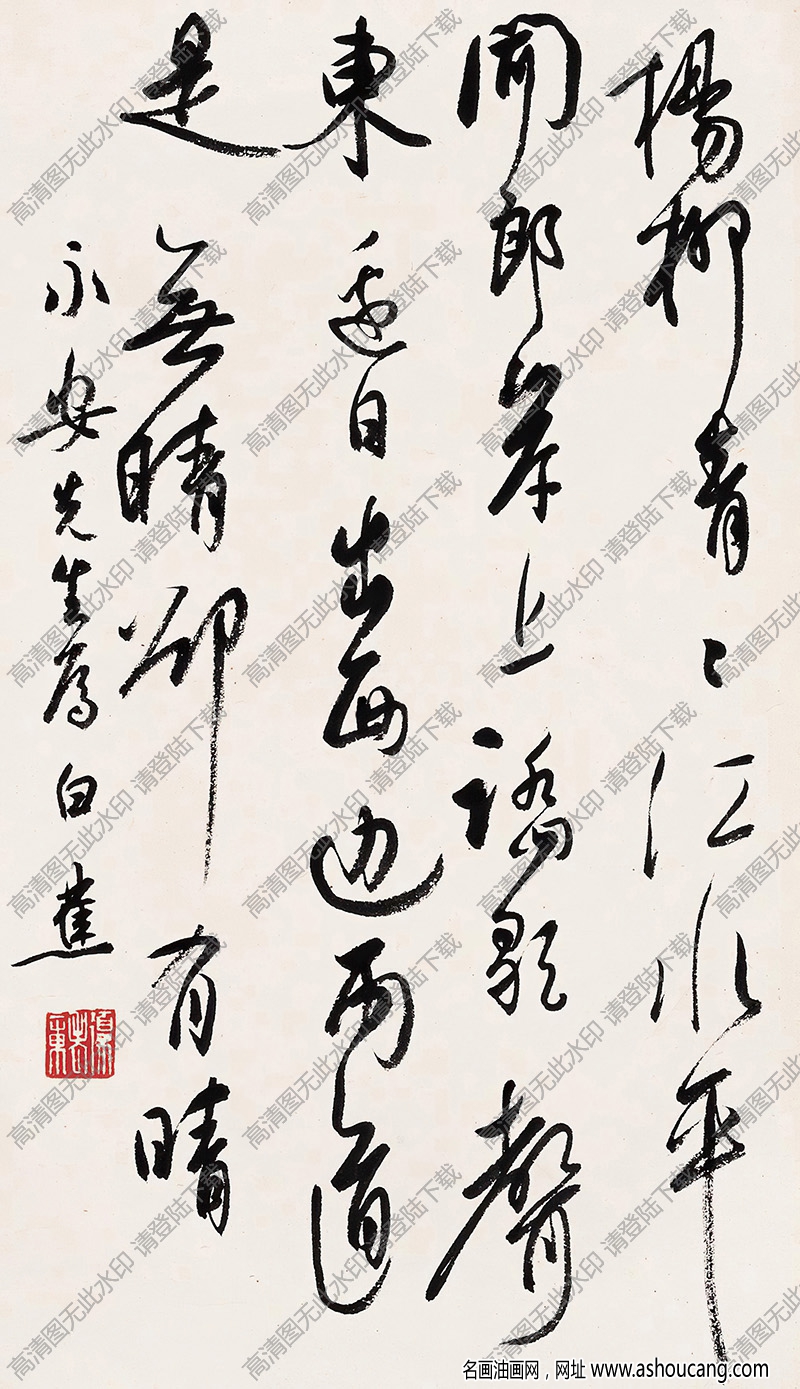 楊柳青〻江水平
聞郎岸上踏歌聲
東邊日出西边雨道
是無晴卻有晴
永安先生属白蕉
高清图无此水印 请登陆下载
名画油画网，网址 www.ashoucang.com